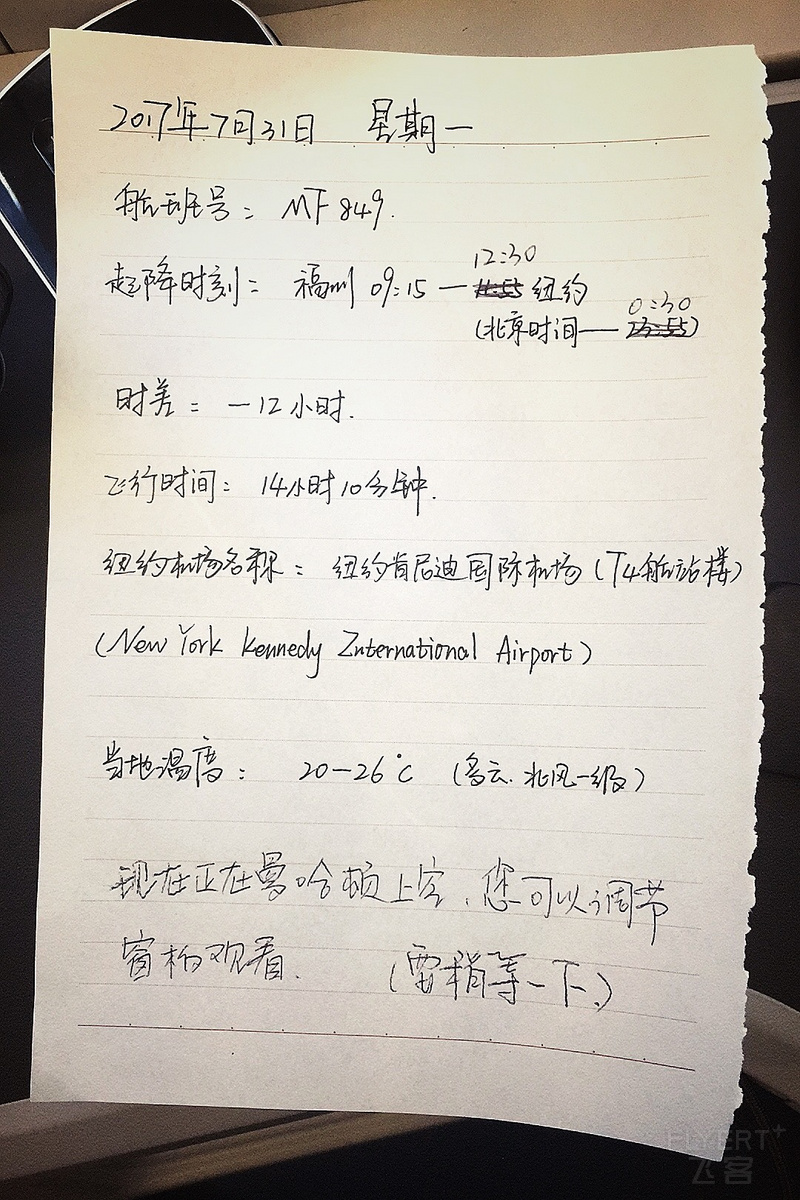 2017年7月31日 星期一
航班号：MF849.
12:30
起降时刻：福州 09:15 — 11:55 纽约
0:30
(北京时间 — 23:55)
时差：-12小时.
飞行时间：14小时10分钟.
纽约机场名称：纽约肯尼迪国际机场(T4航站楼)
(New York Kennedy International Airport)
当地温度：20-26℃ (多云.北风一级)
现在正在曼哈顿上空，您可以调节
窗杓观看. (需稍等一下.)
FLYERT+
飞客